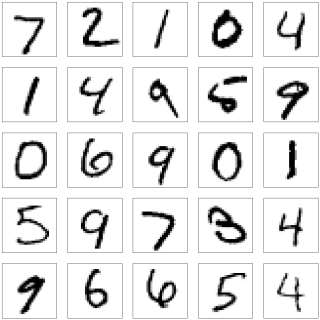 7 2 1 0 4
1 4 9 5 9
0 6 9 0 1
5 9 7 3 4
9 6 6 5 4